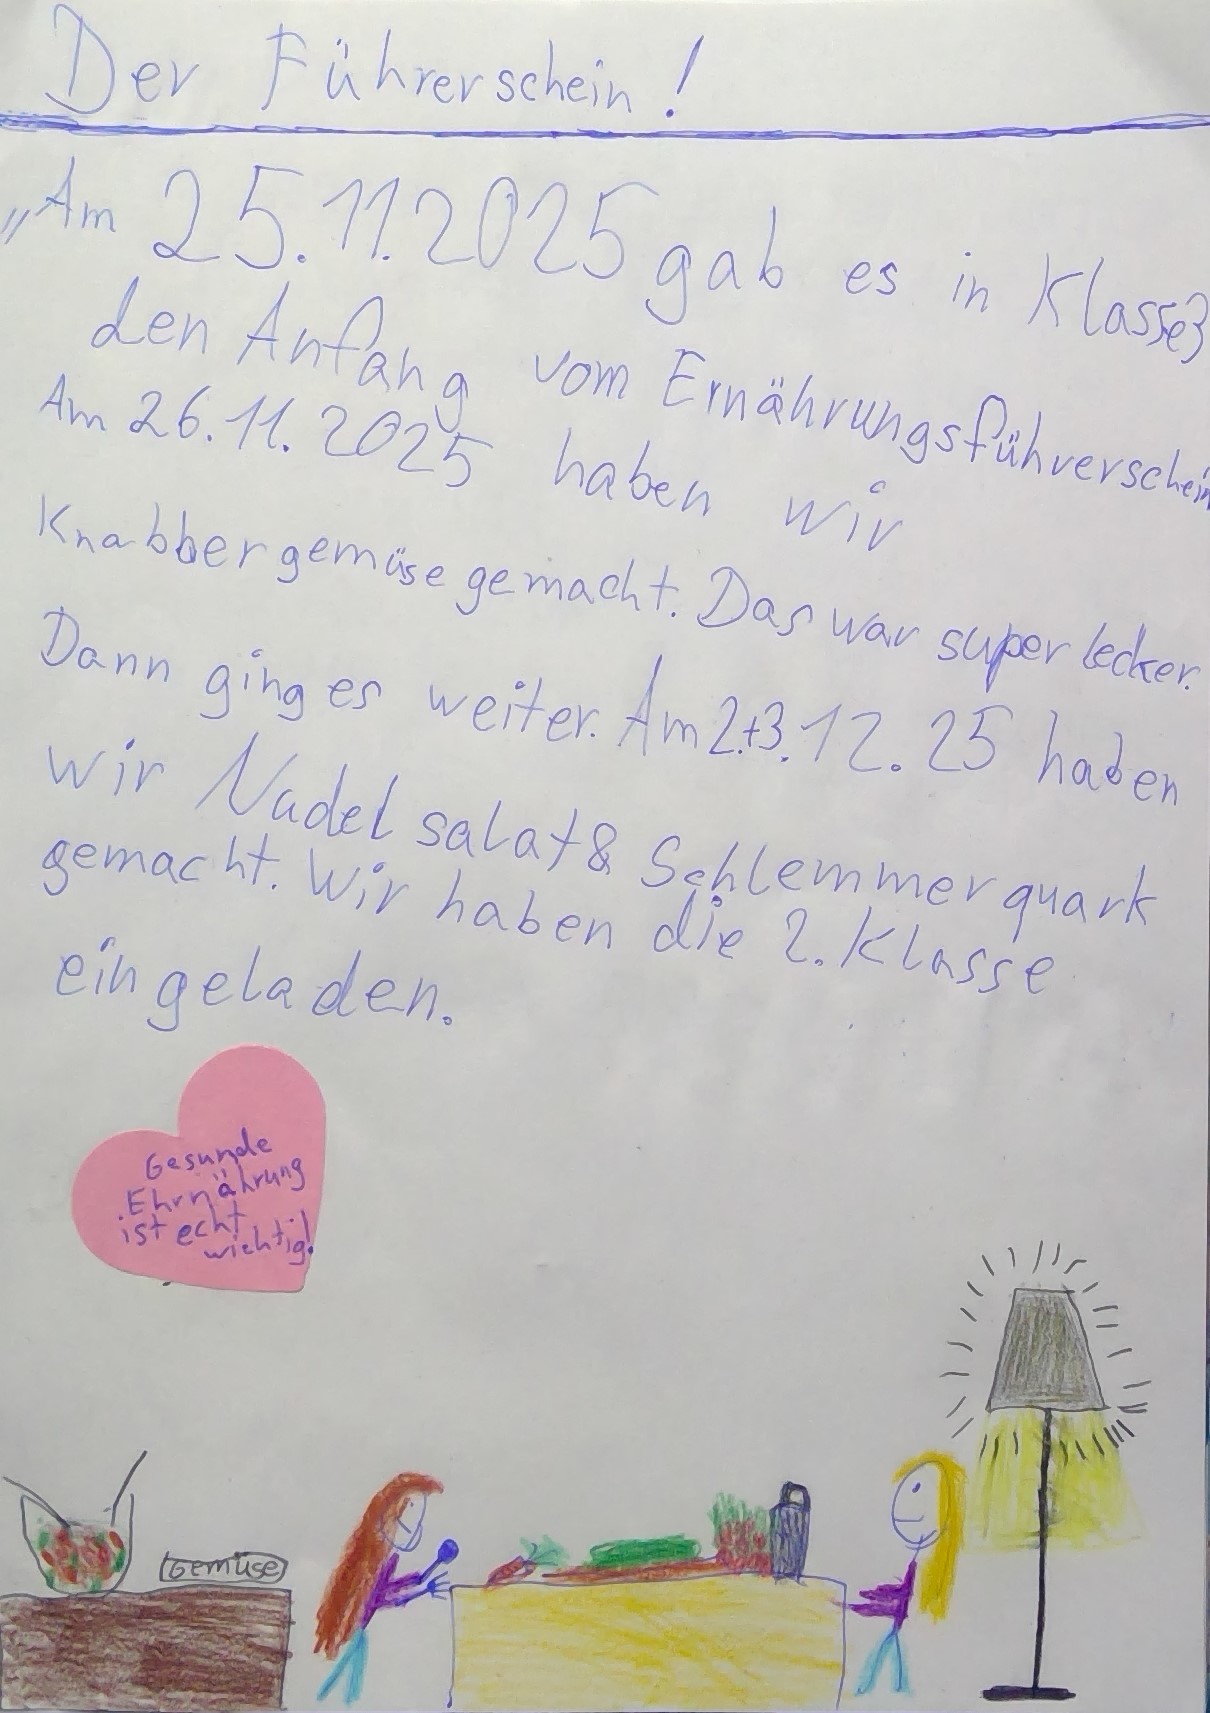 Der Führerschein!
„Am 25.11.2025 gab es in Klasse3
den Anfang vom Ernährungsführerschein
Am 26.11.2025 haben wir
Knabbergemüse gemacht. Das war super lecker.
Dann ging es weiter. Am 2.+3.12.25 haben
wir Nudelsalat & Schlemmerquark
gemacht. Wir haben die 2. Klasse
eingeladen.
Gesunde
Ehrnährung
ist echt
wichtig!
Gemüse